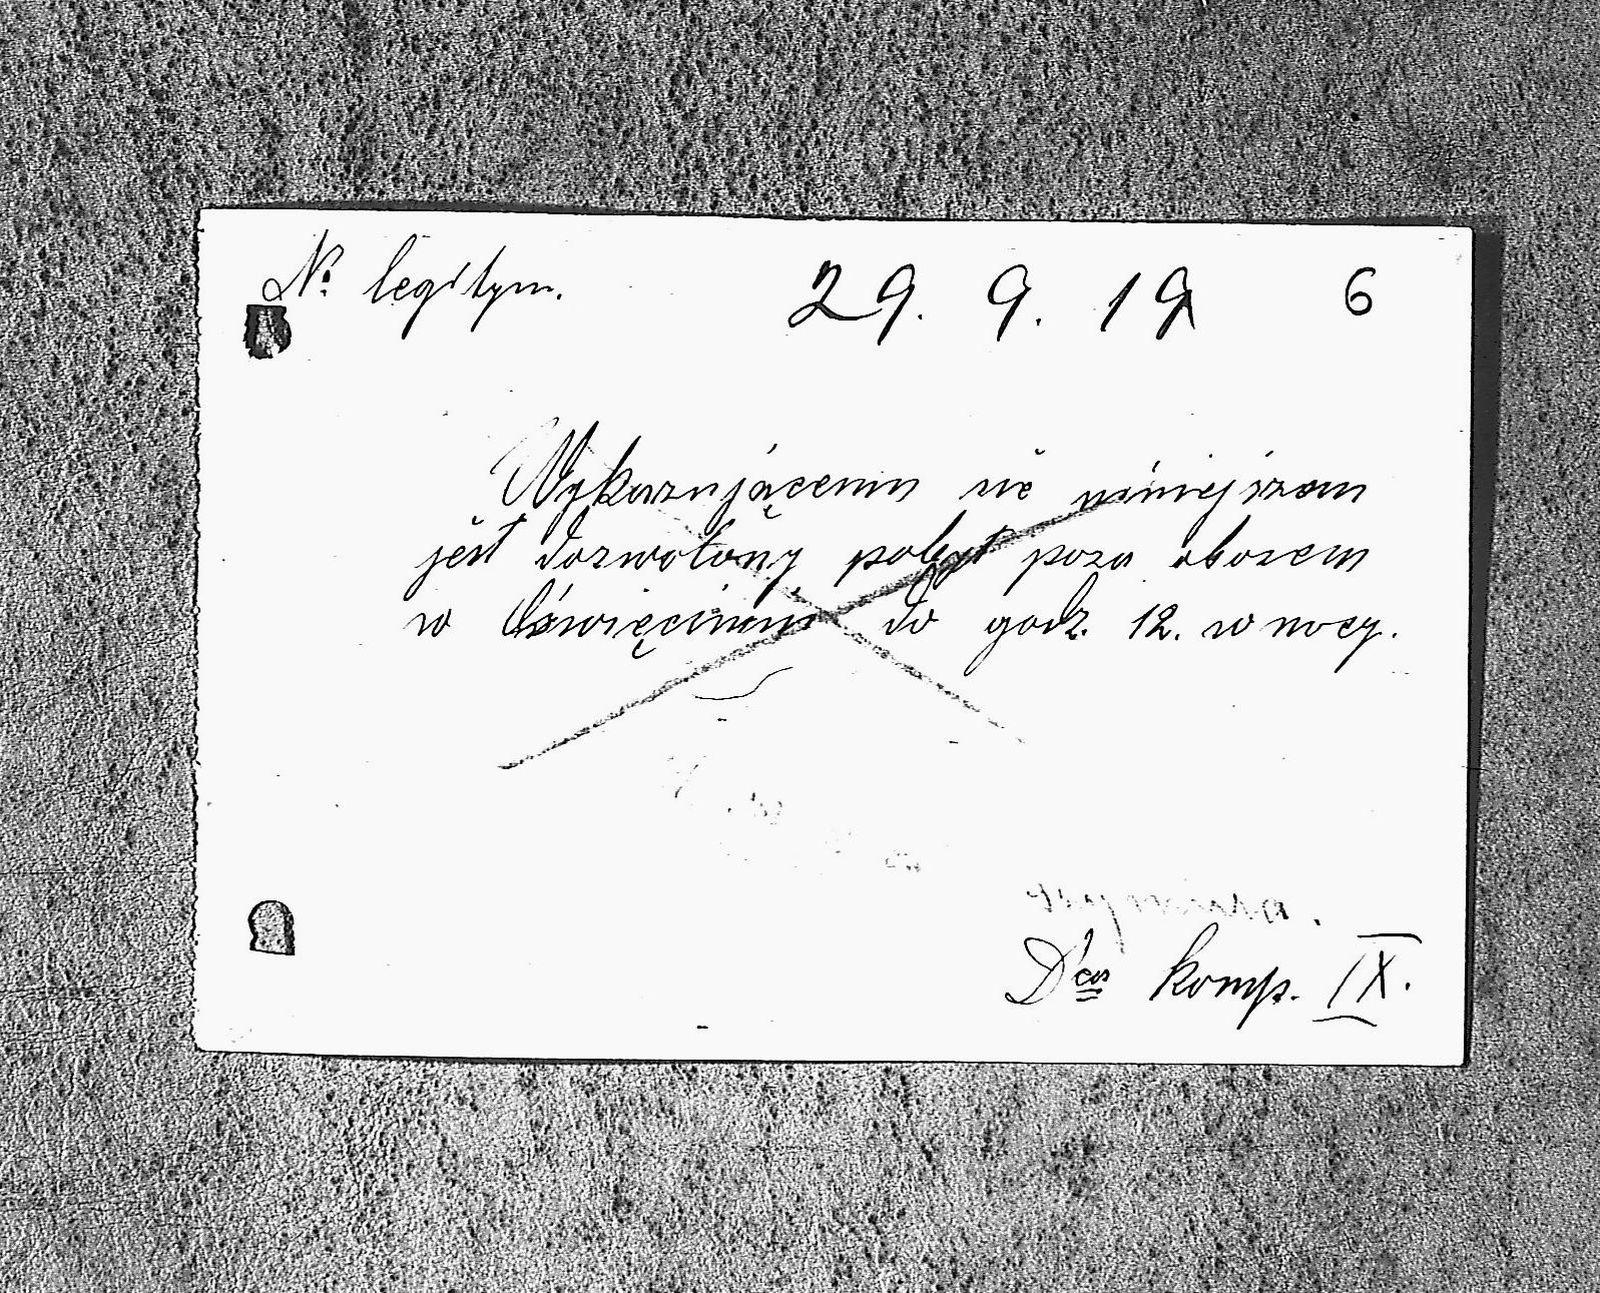 № legitym. 29. 9. 19 6
Wykazującemu się niniejszem
jest dozwolony pobyt poza obozem
w Oświęcimiu do godz. 12. w nocy.
Dca komp. IX.